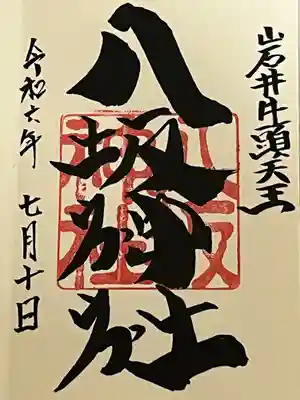 山石井牛頭天王
八坂神社
令和六年 七月十日